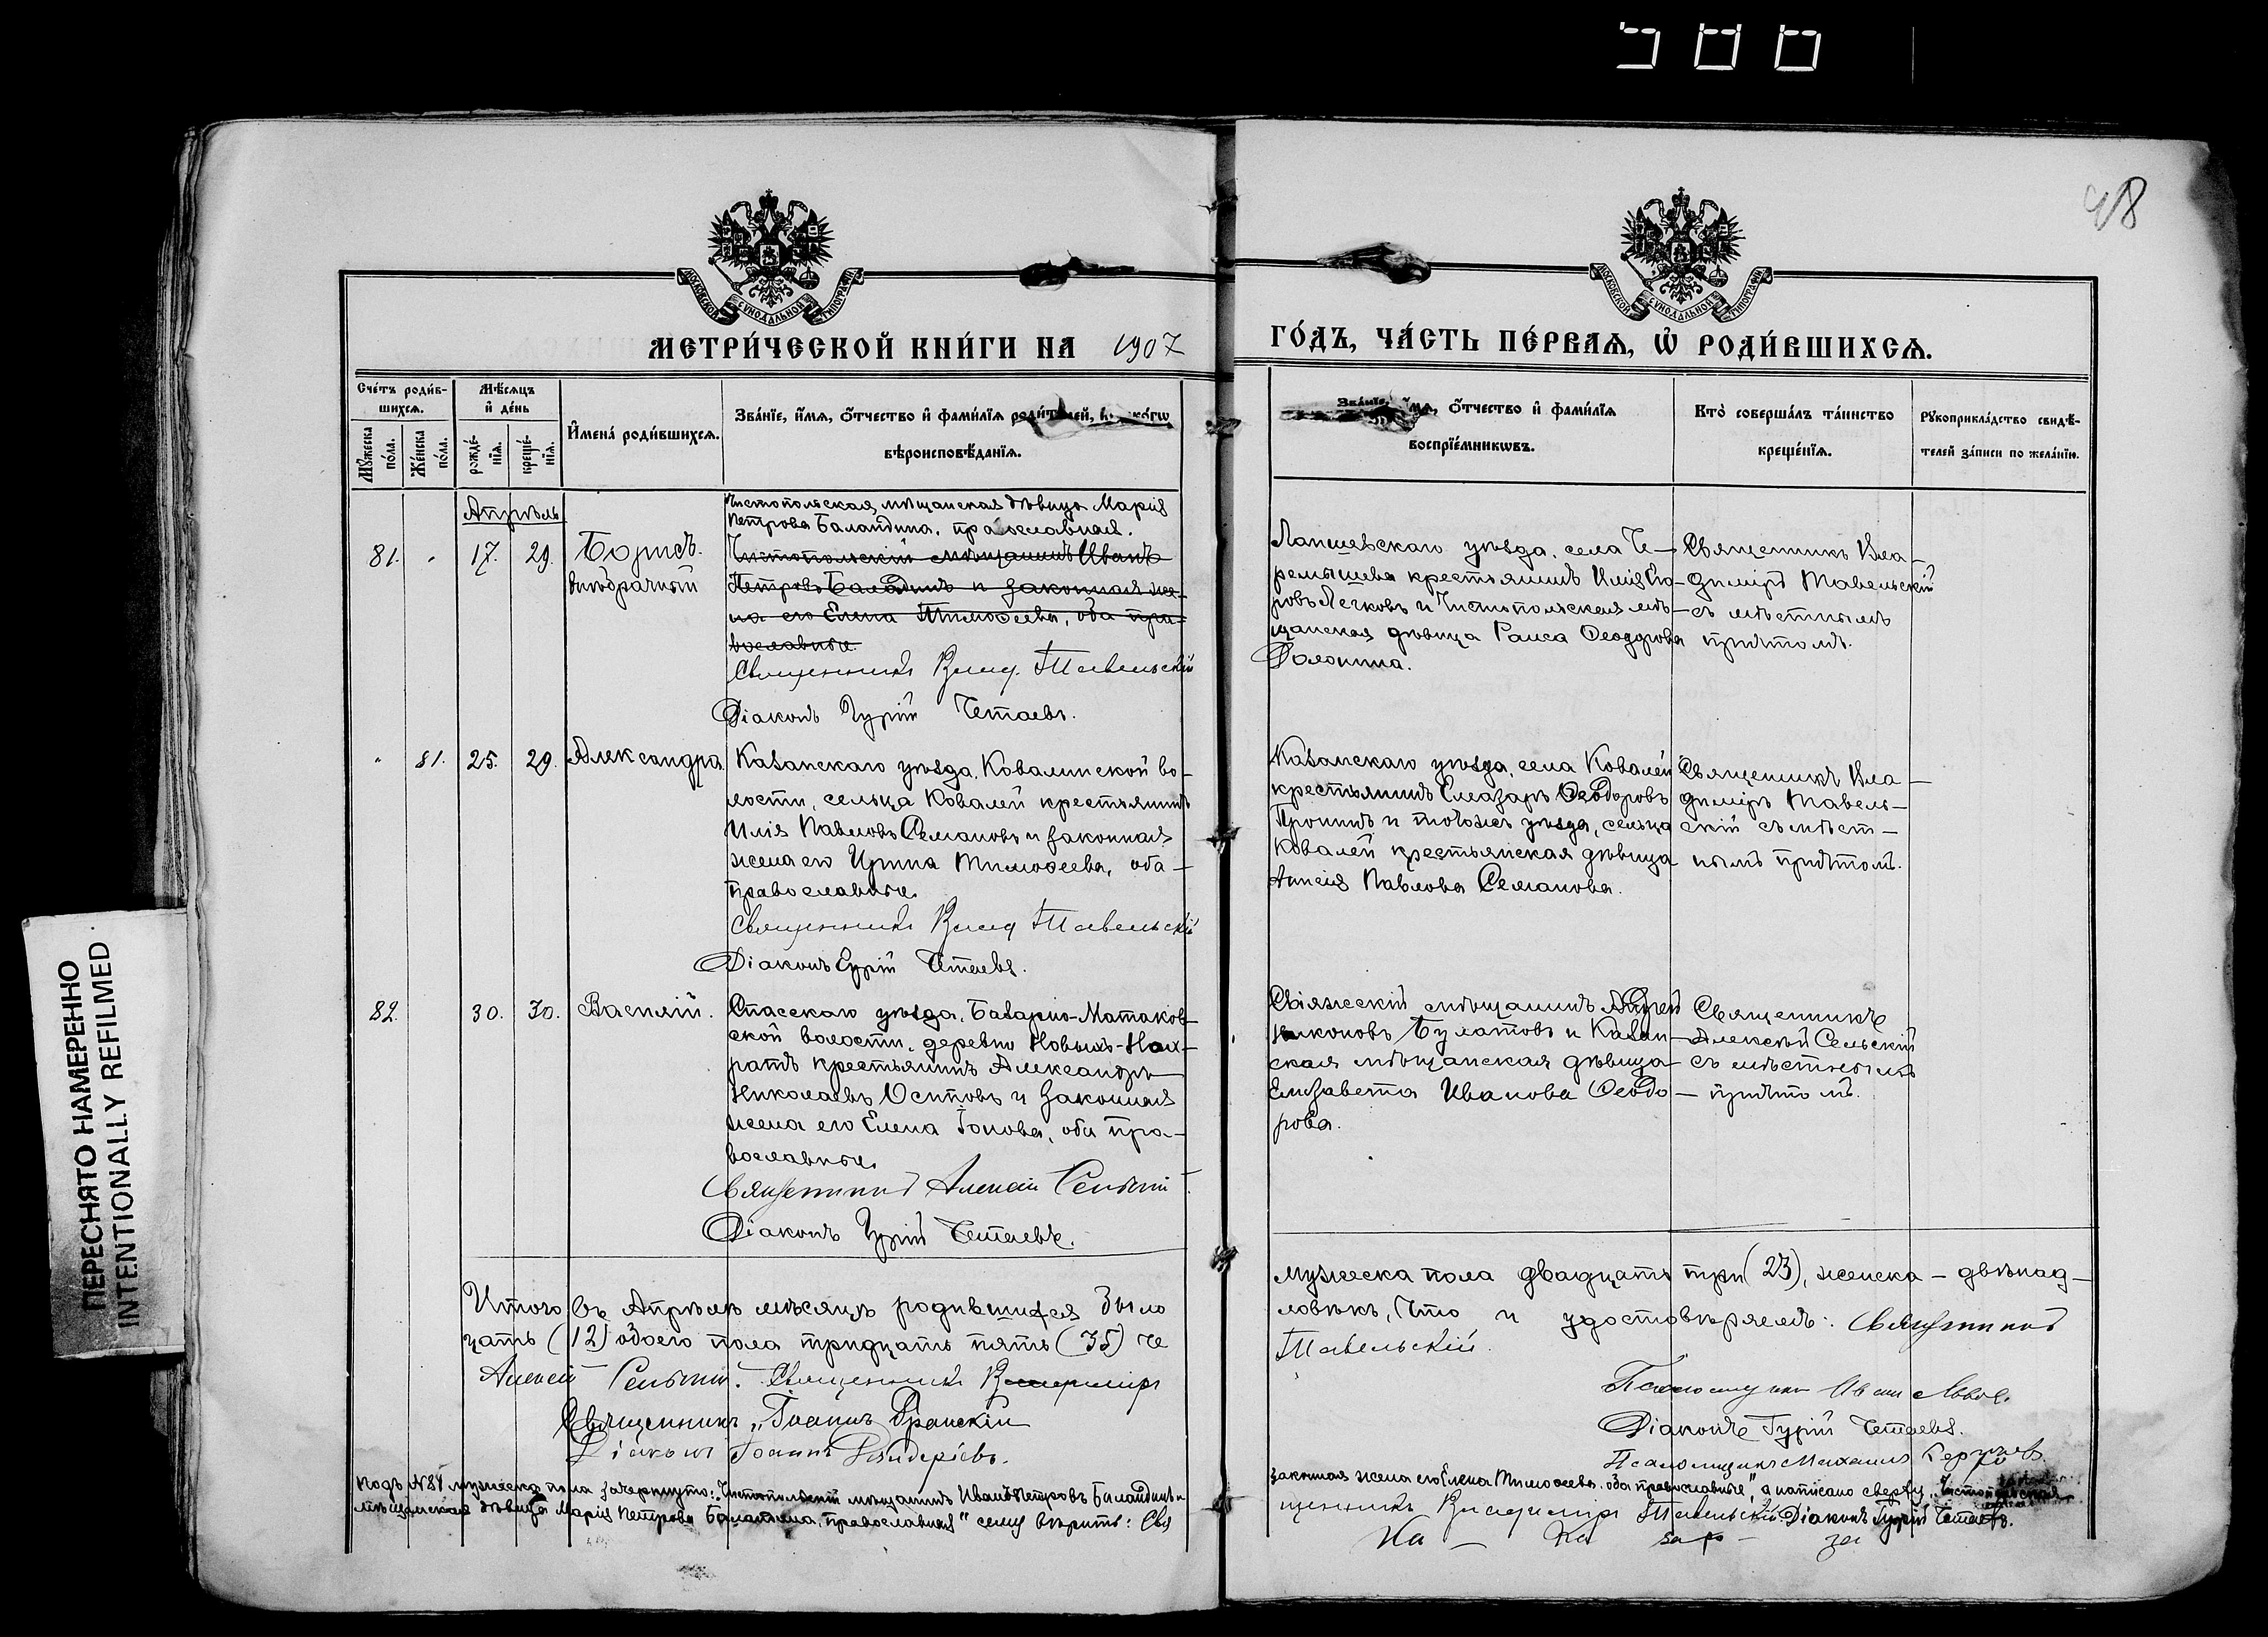 48
МОСКОВСКОЙ СѴНОДАЛЬНОЙ ТИПОГРАФІИ
МОСКОВСКОЙ СѴНОДАЛЬНОЙ ТИПОГРАФІИ
МЕТРИ́ЧЕСКОЙ КНИ́ГИ НА 1907
ГО́ДЪ, ЧА́СТЬ ПЕ́РВАѦ, Ѡ҆ РОДИ́ВШИХСѦ.
Сче́тъ роди́в-
шихсѧ.
Мꙋ́жеска по́ла.
Же́нска по́ла.
Мѣ́сѧцъ
и҆ де́нь
рожде́-
нїѧ.
креще́-
нїѧ.
И҆мена̀ роди́вшихсѧ.
Зва́нїе, и҆́мѧ, ѻ҆́тчество и҆ фами́лїѧ роди́телей, и҆ ко́гѡ
вѣроисповѣ́данїѧ.
Зва́нїе, и҆́мѧ, ѻ҆́тчество и҆ фами́лїѧ
воспрїе́мникѡвъ.
Кто̀ соверша́лъ та́инство
креще́нїѧ.
Рꙋкоприкла́дство свидѣ́-
телей за́писи по жела́нїю.
Апрѣль
Чистопольская мѣщанская дѣвица Марія
Петрова Баландина, православная.
81. " 17. 29. Борисъ.
внѣбрачный
Чистопольскій мѣщанинъ Иванъ
Петровъ Баландинъ и законная же-
на его Елена Тимоѳеева, оба пра-
вославные.
Священникъ Влад. Тавельскій
Діаконъ Гурій Четаевъ.
Лаишевскаго уѣзда, села Че-
ремышева крестьянинъ Илія Его-
ровъ Легковъ и Чистопольская мѣ-
щанская дѣвица Раиса Ѳеодорова
Долонина.
Священникъ Вла-
диміръ Тавельскій
съ мѣстнымъ
причтомъ.
" 81. 25. 29. Александра.
Казанскаго уѣзда, Ковалинской во-
лости, сельца Ковалей крестьянинъ
Илія Павловъ Семановъ и законная
жена его Ирина Тимоѳеева, оба
православные.
Священникъ Влад Тавельскій
Діаконъ Гурій Четаевъ.
Казанскаго уѣзда, села Ковалей
крестьянинъ Елеазаръ Ѳеодоровъ
Пронинъ и того же уѣзда, сельца
Ковалей крестьянская дѣвица
Анисія Павлова Семанова.
Священникъ Вла-
диміръ Тавель-
скій съ мѣст-
нымъ причтомъ.
82. 30. 30. Василій.
Спасскаго уѣзда, Базарно-Матаков-
ской волости, деревни Новыхъ-Нох-
ратъ крестьянинъ Александръ
Николаевъ Осиповъ и законная
жена его Елена Іонова, оба пра-
вославные.
Священникъ Алексій Сельскій
Діаконъ Гурій Четаевъ.
Свіяжскій мѣщанинъ Андрей
Никоновъ Булатовъ и Казан-
ская мѣщанская дѣвица
Елизавета Иванова Ѳеодо-
рова.
Священникъ
Алексѣй Сельскій
съ мѣстнымъ
причтомъ.
Итого въ Апрѣлѣ мѣсяцѣ родившихся было
мужеска пола двадцать три (23), женска - двѣнад-
цать (12) обоего пола тридцать пять (35) че
ловѣкъ, что и удостовѣряемъ: Священникъ
Алексій Сельскій. Священникъ Владиміръ
Тавельскій.
Священникъ Іоаннъ
Діаконъ Іоаннъ
Псаломщикъ Иванъ
Діаконъ Гурій Четаевъ.
Псаломщикъ Михаилъ
Подъ №81 мужеска пола зачеркнуто: "Чистопольскій мѣщанинъ Иванъ Петровъ Баландинъ и
законная жена его Елена Тимоѳеева, оба православные", а написано сверху "Чистопольская
мѣщанская дѣвица Марія Петрова Баландина, православная" сему вѣрить: Свя
щенникъ Владиміръ Тавельскій. Діаконъ Гурій Четаевъ.
ПЕРЕСНЯТО НАМЕРЕННО
INTENTIONALLY REFILMED